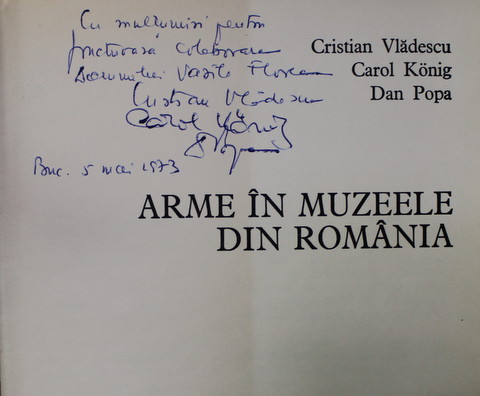 Cu mulțumiri pentru
fructuoasă colaborare
Vasile Florea
Cristian Vlădescu
Carol König
D Popa
Buc. 5 mai 1973
Cristian Vlădescu
Carol König
Dan Popa
ARME ÎN MUZEELE
DIN ROMÂNIA